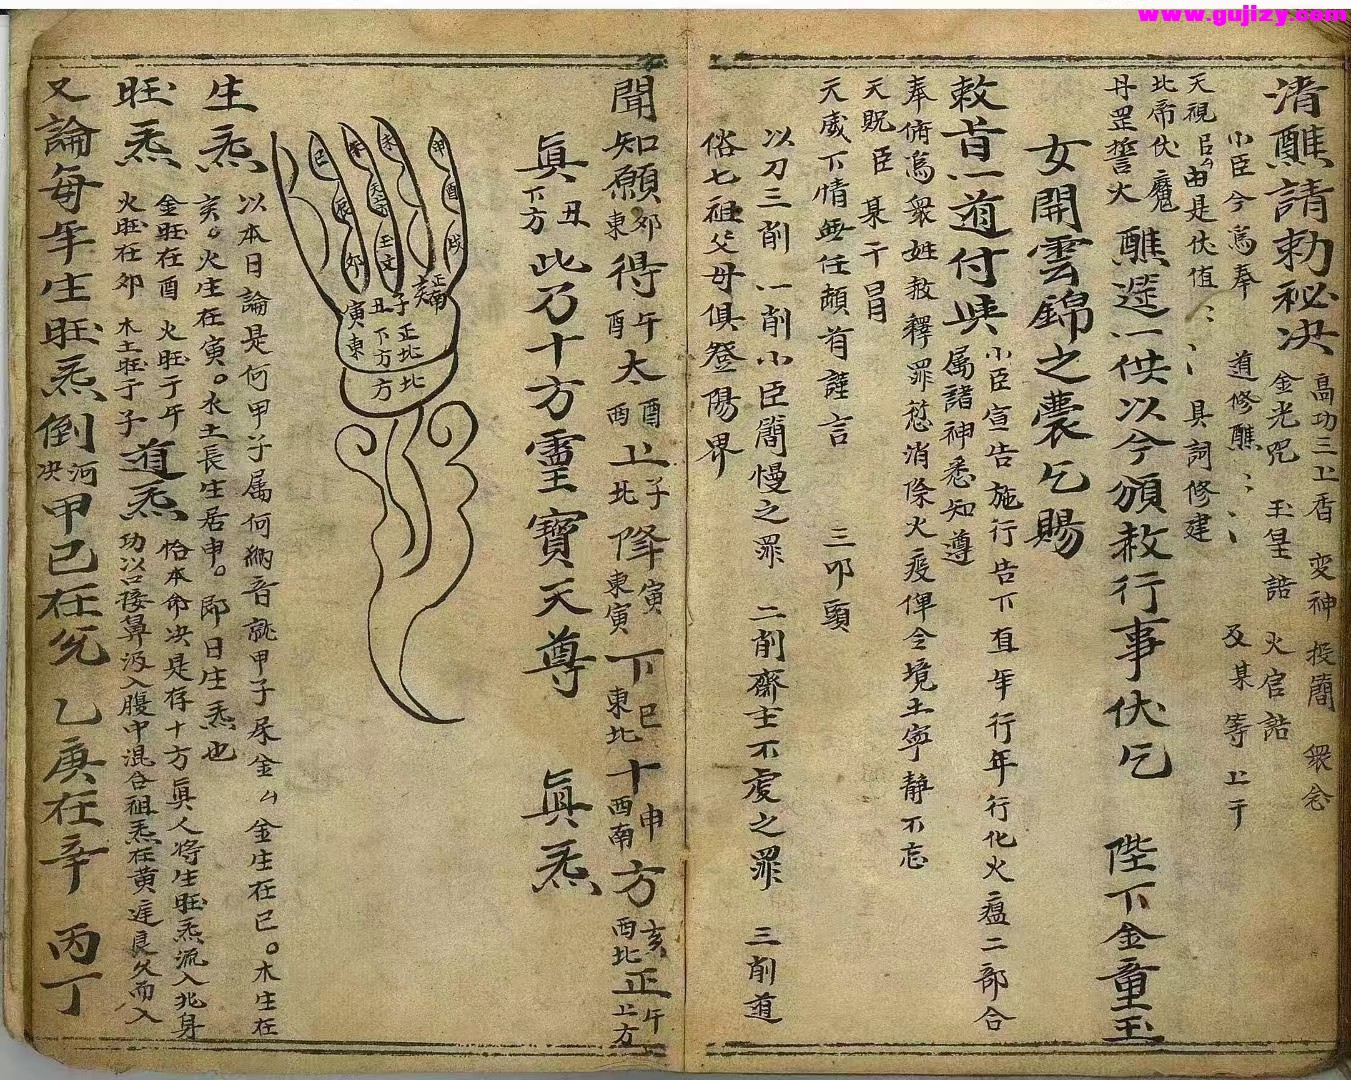 www.gujizy.com
清醮請勅秘決 高功三上香 变神 投簡 衆念
金光咒 玉皇誥 火官誥
小臣今為奉 道修醮 及某等 上干
天視 臣 由是伏值 具詞修建
北帝伏魔
丹罡誓火 醮筵一供以今頒赦行事伏乞 陛下金童玉
女開雲錦之囊乞賜
赦首一道付與 小臣宣告施行告下直年行年行化火瘟二部合
属諸神悉知遵
奉俯為衆姓赦釋罪愆消除火疫俾令境土寧靜不忘
天貺 臣 某干冒
天威下情無任頼有謹言 三叩頭
以刀三削 一削小臣簡慢之罪 二削齋士不虔之罪 三削道
俗七祖父母俱登陽界
聞知願 卯東 得 午酉 太 酉西 上 子北 降 寅東寅 下 巳東北 十 申西南 方 亥西北 正 午上方
眞 丑下方 此乃十方靈寶天尊 眞炁
甲 酉 戌 未 天 玉文 午 辰 卯 巳
亥 正南 子正北 丑下方 寅東 北方
生炁 以本日論是何甲子属何納音就甲子属金 金生在巳。木生在
亥。火生在寅。水土長生居申。即日生炁也
旺炁 金旺在酉 火旺于午 火旺在卯 木土旺于子 道炁 恰本命决是存十方眞人将生旺炁流入北身
功以口接鼻汲入腹中混合祖炁在黄庭良久而入
又論每年生旺炁倒 河决 甲己在 乙庚在辛 丙丁